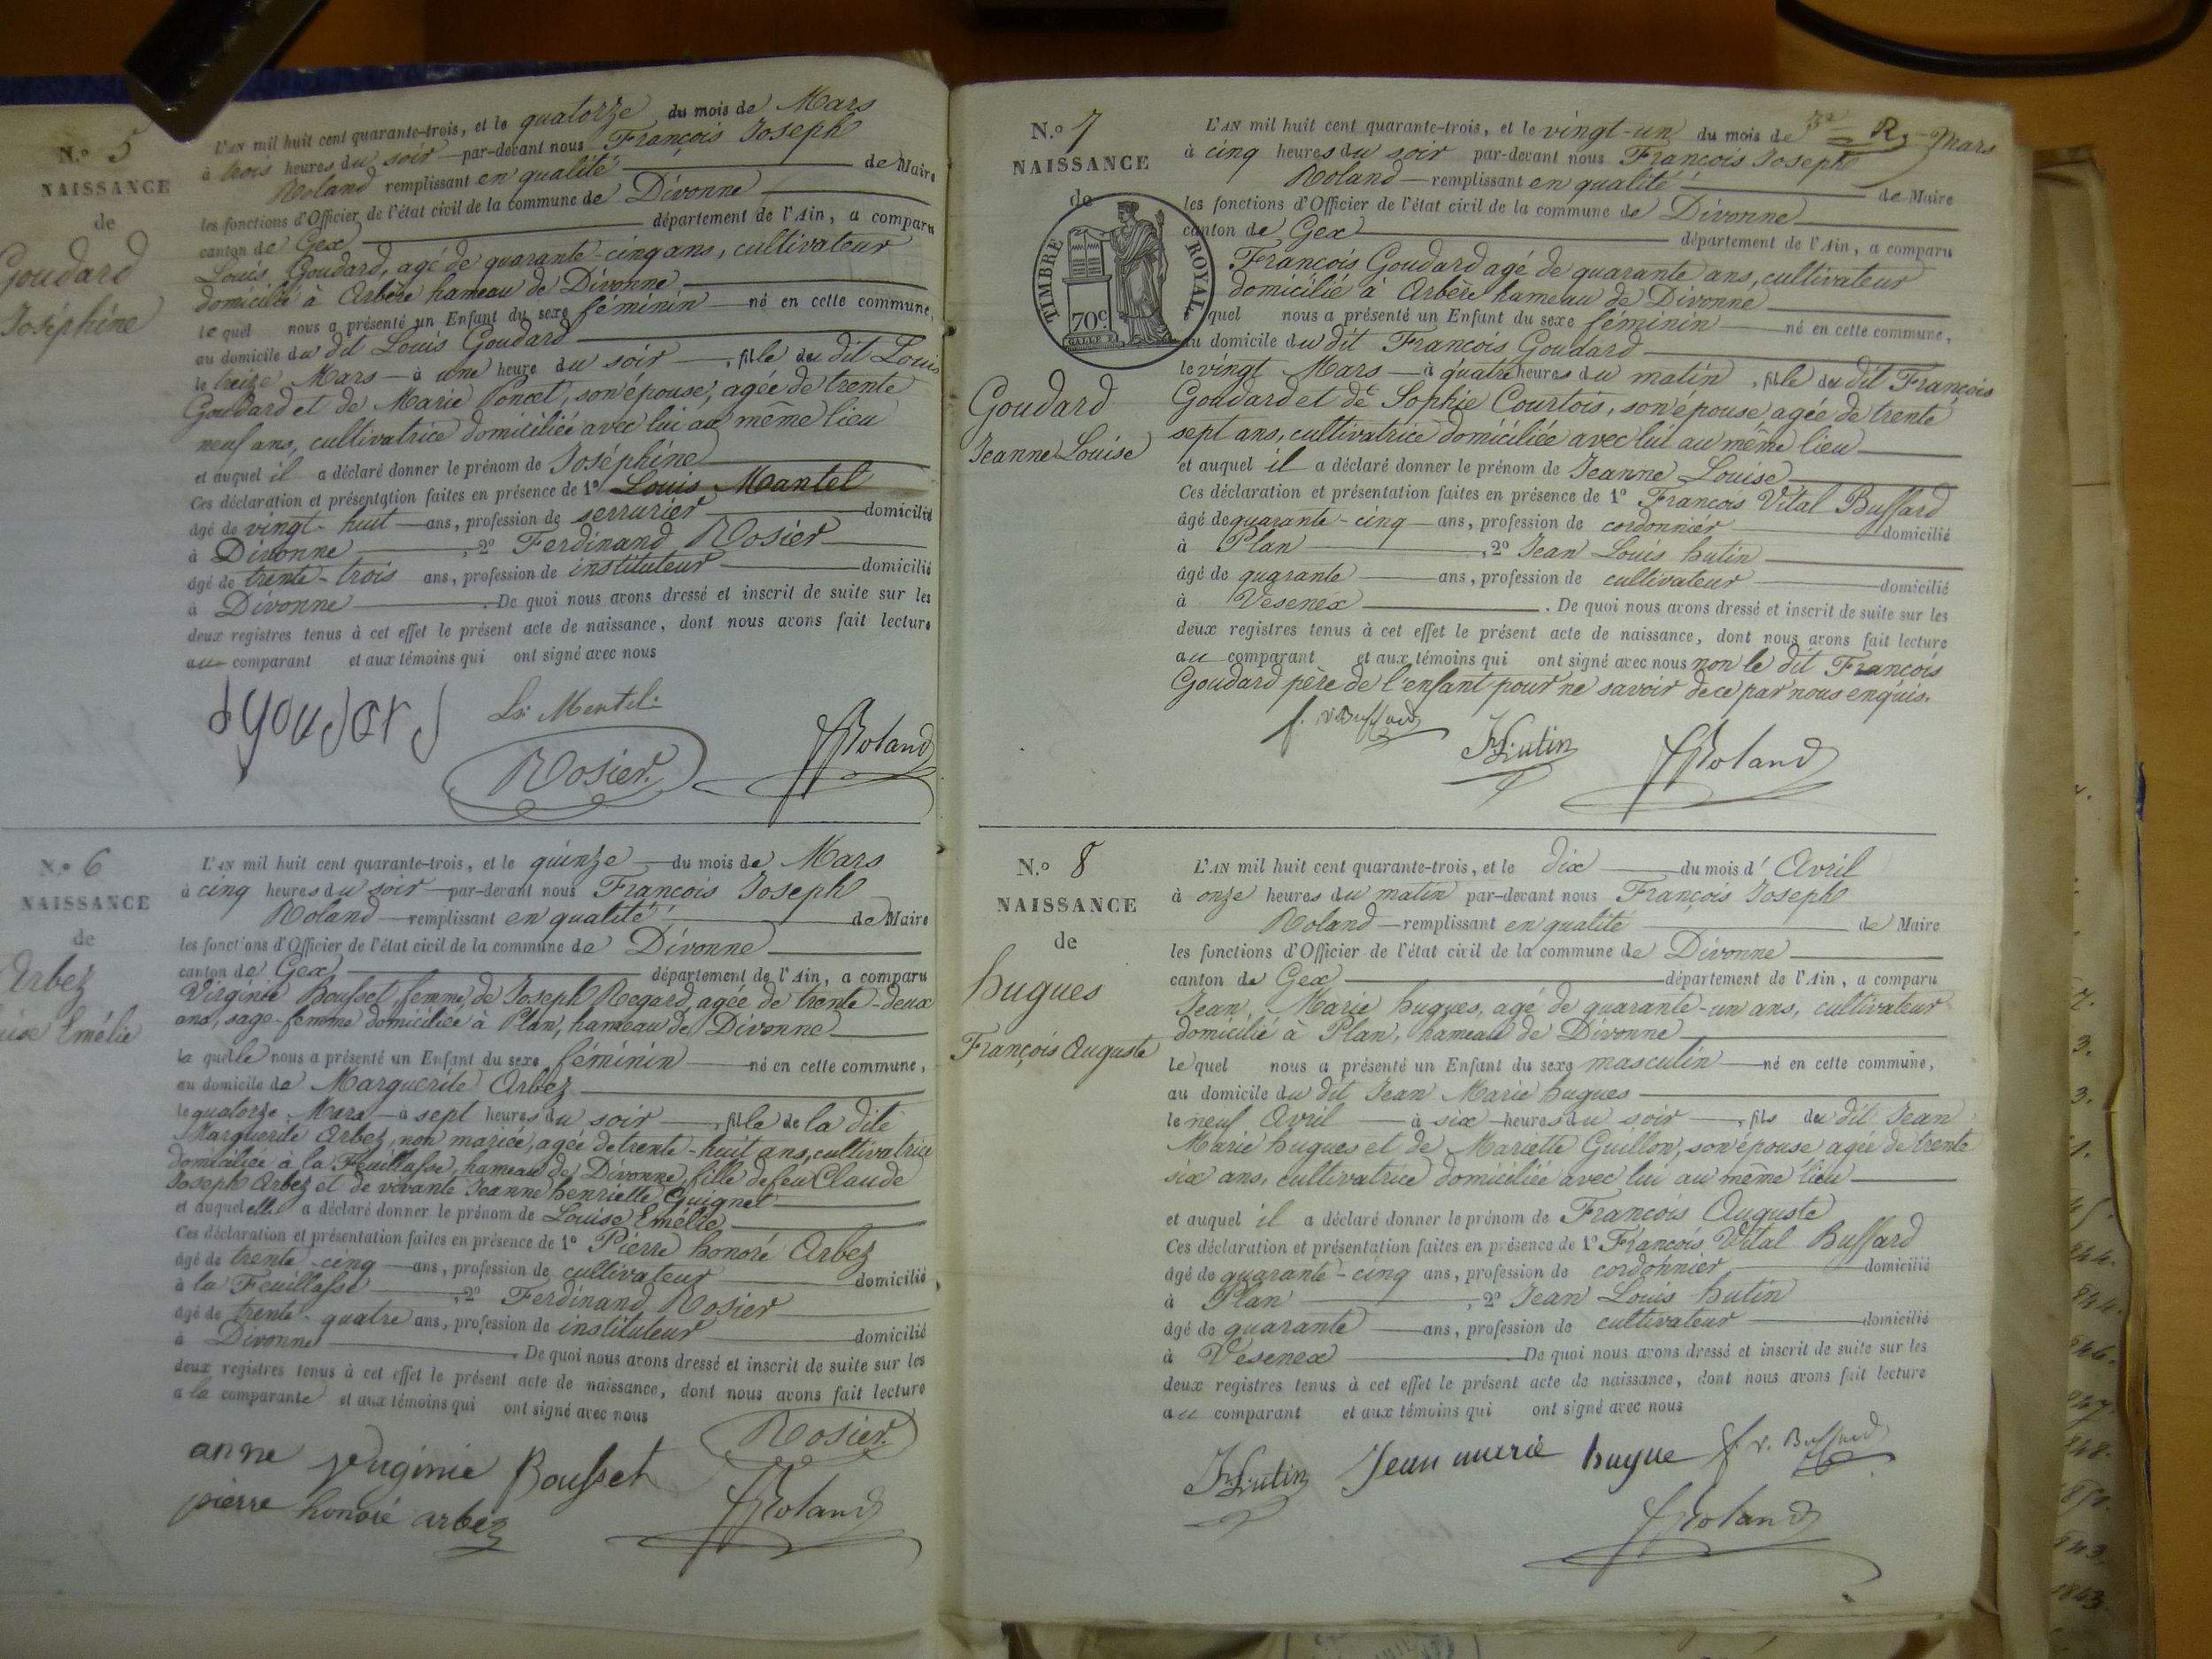 N.º 5
NAISSANCE
de
Goudard
Joséphine
L'AN mil huit cent quarante-trois, et le quatorze du mois de Mars
à trois heures du soir par-devant nous François Joseph
Roland remplissant en qualité de Maire
les fonctions d'Officier de l'état civil de la commune de Divonne
canton de Gex département de l'Ain, a comparu
Louis Goudard, agé de quarante-cinq ans, cultivateur
domicilié à Arbère hameau de Divonne
le quel nous a présenté un Enfant du sexe féminin né en cette commune,
au domicile du dit Louis Goudard
le treize Mars à une heure du soir, fille du dit Louis
Goudard et de Marie Poncet, son épouse, agée de trente
neuf ans, cultivatrice domiciliée avec lui au même lieu
et auquel il a déclaré donner le prénom de Joséphine
Ces déclaration et présentation faites en présence de 1º Louis Mantel
âgé de vingt-huit ans, profession de serrurier domicilié
à Divonne, 2º Ferdinand Rosier
âgé de trente-trois ans, profession de instituteur domicilié
à Divonne. De quoi nous avons dressé et inscrit de suite sur les
deux registres tenus à cet effet le présent acte de naissance, dont nous avons fait lecture
au comparant et aux témoins qui ont signé avec nous
Ls. Mentel
Rosier
Roland
N.º 6
NAISSANCE
de
Arbez
Emélie
L'AN mil huit cent quarante-trois, et le quinze du mois de Mars
à cinq heures du soir par-devant nous François Joseph
Roland remplissant en qualité de Maire
les fonctions d'Officier de l'état civil de la commune de Divonne
canton de Gex département de l'Ain, a comparu
Virginie Bousset, femme de Joseph Regard, agée de trente-deux
ans, sage-femme domiciliée à Plan, hameau de Divonne
la quelle nous a présenté un Enfant du sexe féminin né en cette commune,
au domicile de Marguerite Arbez
le quatorze Mars à sept heures du soir, fille de la dite
Marguerite Arbez, non mariée, agée de trente-huit ans, cultivatrice
domiciliée à la Feuillasse, hameau de Divonne, fille de feu Claude
Joseph Arbez et de vivante Jeanne henriette Guignet
et auquel elle a déclaré donner le prénom de Louise Emélie
Ces déclaration et présentation faites en présence de 1º Pierre honoré Arbez
âgé de trente-cinq ans, profession de cultivateur domicilié
à la Feuillasse, 2º Ferdinand Rosier
âgé de trente-quatre ans, profession de instituteur domicilié
à Divonne. De quoi nous avons dressé et inscrit de suite sur les
deux registres tenus à cet effet le présent acte de naissance, dont nous avons fait lecture
a la comparante et aux témoins qui ont signé avec nous
Rosier
anne virginie Bousset
pierre honoré arbez
Roland
N.º 7
NAISSANCE
de
TIMBRE ROYAL
70c.
Goudard
Jeanne Louise
L'AN mil huit cent quarante-trois, et le vingt-un du mois de Mars
à cinq heures du soir par-devant nous François Joseph
Roland remplissant en qualité de Maire
les fonctions d'Officier de l'état civil de la commune de Divonne
canton de Gex département de l'Ain, a comparu
François Goudard agé de quarante ans, cultivateur
domicilié à Arbère hameau de Divonne
quel nous a présenté un Enfant du sexe féminin né en cette commune,
au domicile du dit François Goudard
le vingt Mars à quatre heures du matin, fille du dit François
Goudard et de Sophie Courtois, son épouse agée de trente
sept ans, cultivatrice domiciliée avec lui au même lieu
et auquel il a déclaré donner le prénom de Jeanne Louise
Ces déclaration et présentation faites en présence de 1º François Vital Buffard
âgé de quarante-cinq ans, profession de cordonnier domicilié
à Plan, 2º Jean Louis hutin
âgé de quarante ans, profession de cultivateur domicilié
à Vesenex. De quoi nous avons dressé et inscrit de suite sur les
deux registres tenus à cet effet le présent acte de naissance, dont nous avons fait lecture
au comparant et aux témoins qui ont signé avec nous non le dit François
Goudard père de l'enfant pour ne savoir de ce par nous enquis.
f. v. Buffard
Hutin
Roland
N.º 8
NAISSANCE
de
hugues
François Auguste
L'AN mil huit cent quarante-trois, et le dix du mois d'Avril
à onze heures du matin par-devant nous François Joseph
Roland remplissant en qualité de Maire
les fonctions d'Officier de l'état civil de la commune de Divonne
canton de Gex département de l'Ain, a comparu
Jean Marie hugues, agé de quarante-un ans, cultivateur
domicilié à Plan, hameau de Divonne
le quel nous a présenté un Enfant du sexe masculin né en cette commune,
au domicile du dit Jean Marie hugues
le neuf Avril à six heures du soir, fils du dit Jean
Marie hugues et de Mariette Guillon, son épouse agée de trente
six ans, cultivatrice domiciliée avec lui au même lieu
et auquel il a déclaré donner le prénom de François Auguste
Ces déclaration et présentation faites en présence de 1º François Vital Buffard
âgé de quarante-cinq ans, profession de cordonnier domicilié
à Plan, 2º Jean Louis hutin
âgé de quarante ans, profession de cultivateur domicilié
à Vesenex. De quoi nous avons dressé et inscrit de suite sur les
deux registres tenus à cet effet le présent acte de naissance, dont nous avons fait lecture
au comparant et aux témoins qui ont signé avec nous
Hutin Jean marie hugue f. v. Buffard
Roland